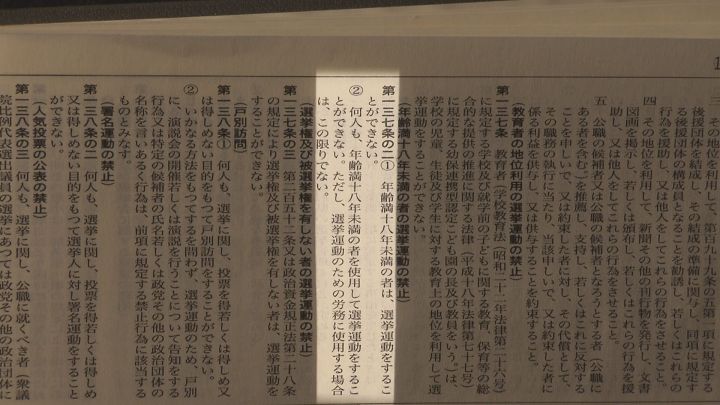 後援団体の構成員となることを勧誘し、若しくはこれらの
行為を援助し、又は他人をしてこれらの行為をさせること。
四 その地位を利用して、新聞その他の刊行物を発行し、文書
図画を掲示し、若しくは頒布し、若しくはこれらの行為を援
助し、又は他人をしてこれらの行為をさせること。
五 公職の候補者又は公職の候補者となろうとする者(公職に
ある者を含む。)を推薦し、支持し、若しくはこれに反対する
ことを申しいで、又は約束した者に対し、その代償として、
その職務の執行に当たり、当該申しいで、又は約束した者に
係る利益を供与し、又は供与することを約束すること。
(教育者の地位利用の選挙運動の禁止)
第一三七条 教育者(学校教育法(昭和二十二年法律第二十六号)
に規定する学校及び就学前の子どもに関する教育、保育等の総
合的な提供の推進に関する法律(平成十八年法律第七十七号)
に規定する幼保連携型認定こども園の長及び教員をいう。)は、
学校の児童、生徒及び学生に対する教育上の地位を利用して選
挙運動をすることができない。
(年齢満十八年未満の者の選挙運動の禁止)
第一三七条の二① 年齢満十八年未満の者は、選挙運動をするこ
とができない。
② 何人も、年齢満十八年未満の者を使用して選挙運動をするこ
とができない。ただし、選挙運動のための労務に使用する場合
は、この限りでない。
(選挙権及び被選挙権を有しない者の選挙運動の禁止)
第一三七条の三 第二百五十二条又は政治資金規正法第二十八条
の規定により選挙権及び被選挙権を有しない者は、選挙運動を
することができない。
(戸別訪問)
第一三八条① 何人も、選挙に関し、投票を得若しくは得しめ又
は得しめない目的をもつて戸別訪問をすることができない。
② いかなる方法をもつてするを問わず、選挙運動のため、戸別
に、演説会の開催若しくは演説を行うことについて告知をする
行為又は特定の候補者の氏名若しくは政党その他の政治団体の
名称を言いあるく行為は、前項に規定する禁止行為に該当する
ものとみなす。
(署名運動の禁止)
第一三八条の二 何人も、選挙に関し、投票を得若しくは得しめ
又は得しめない目的をもつて選挙人に対し署名運動をすること
ができない。
(人気投票の公表の禁止)
第一三八条の三 何人も、選挙に関し、公職に就くべき者(衆議
院比例代表選出議員の選挙にあつては政党その他の政治団体に